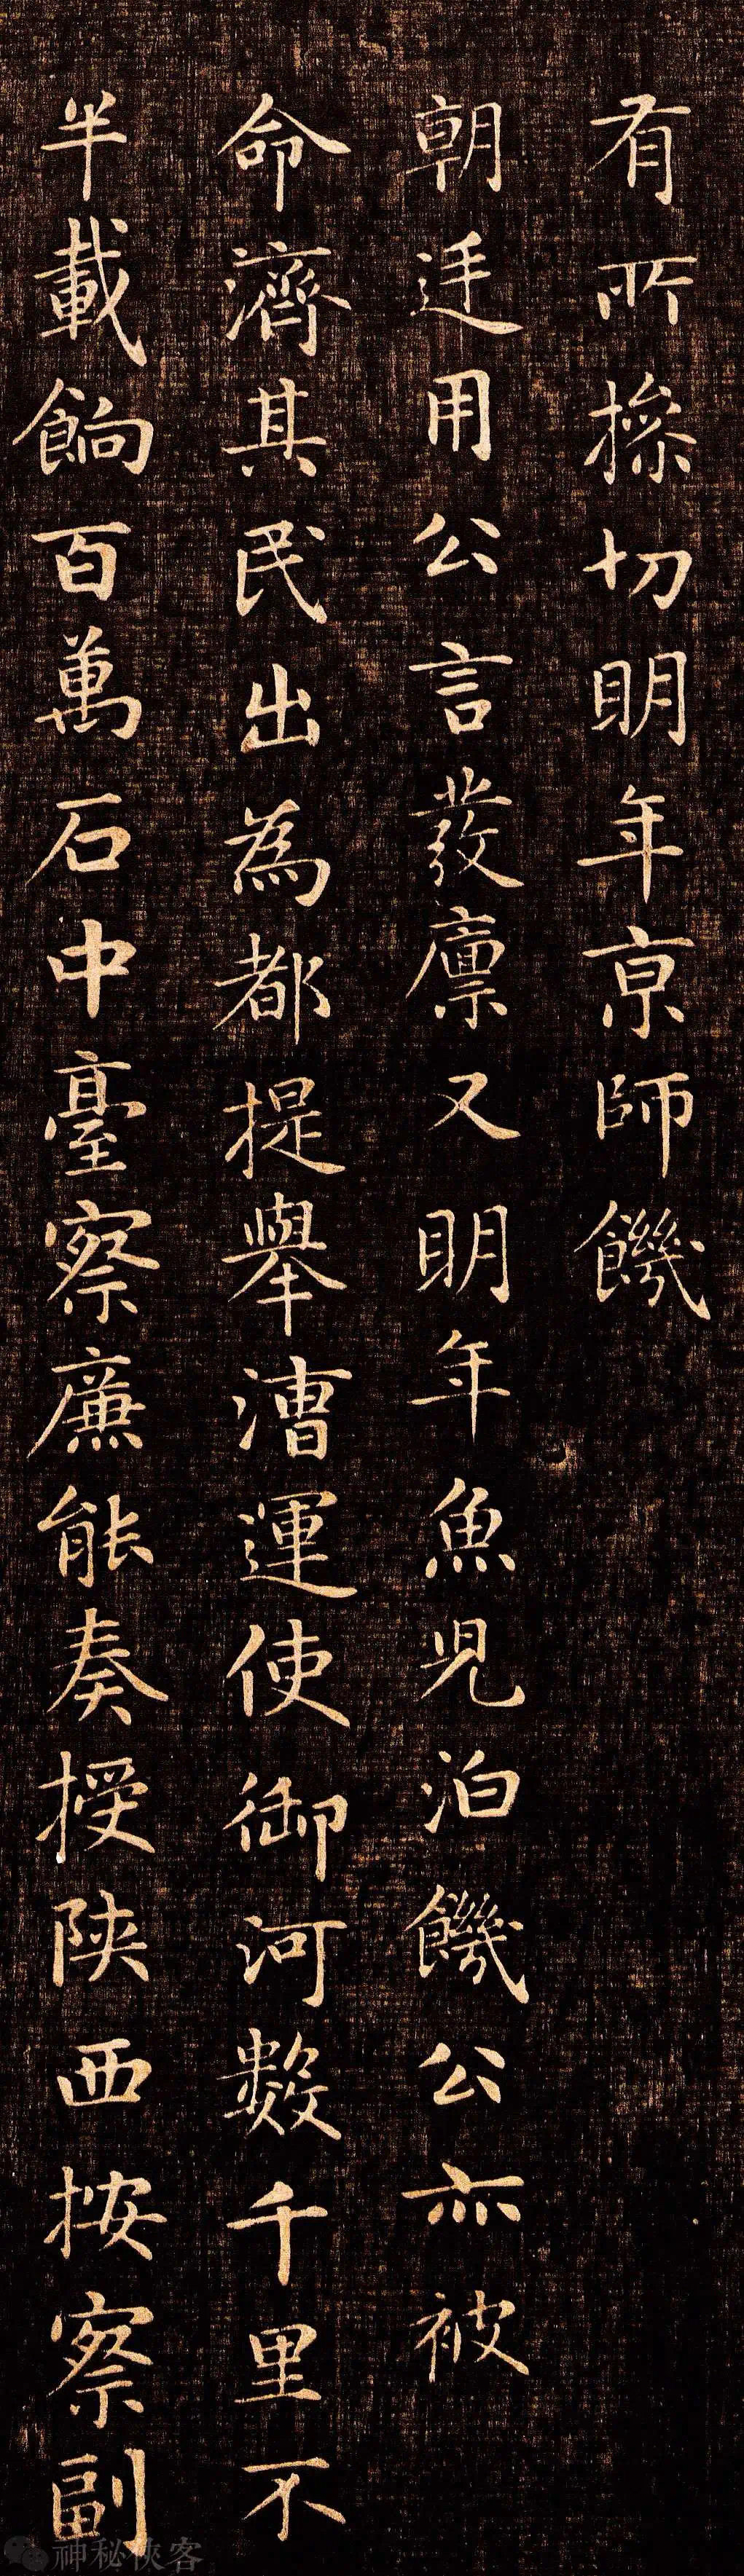 有所操切明年京師饑
朝廷用公言發廪又明年魚児泊饑公亦被
命濟其民出為都提舉漕運使御河數千里不
半載餉百萬石中臺察廉能奏授陝西按察副
神秘俠客